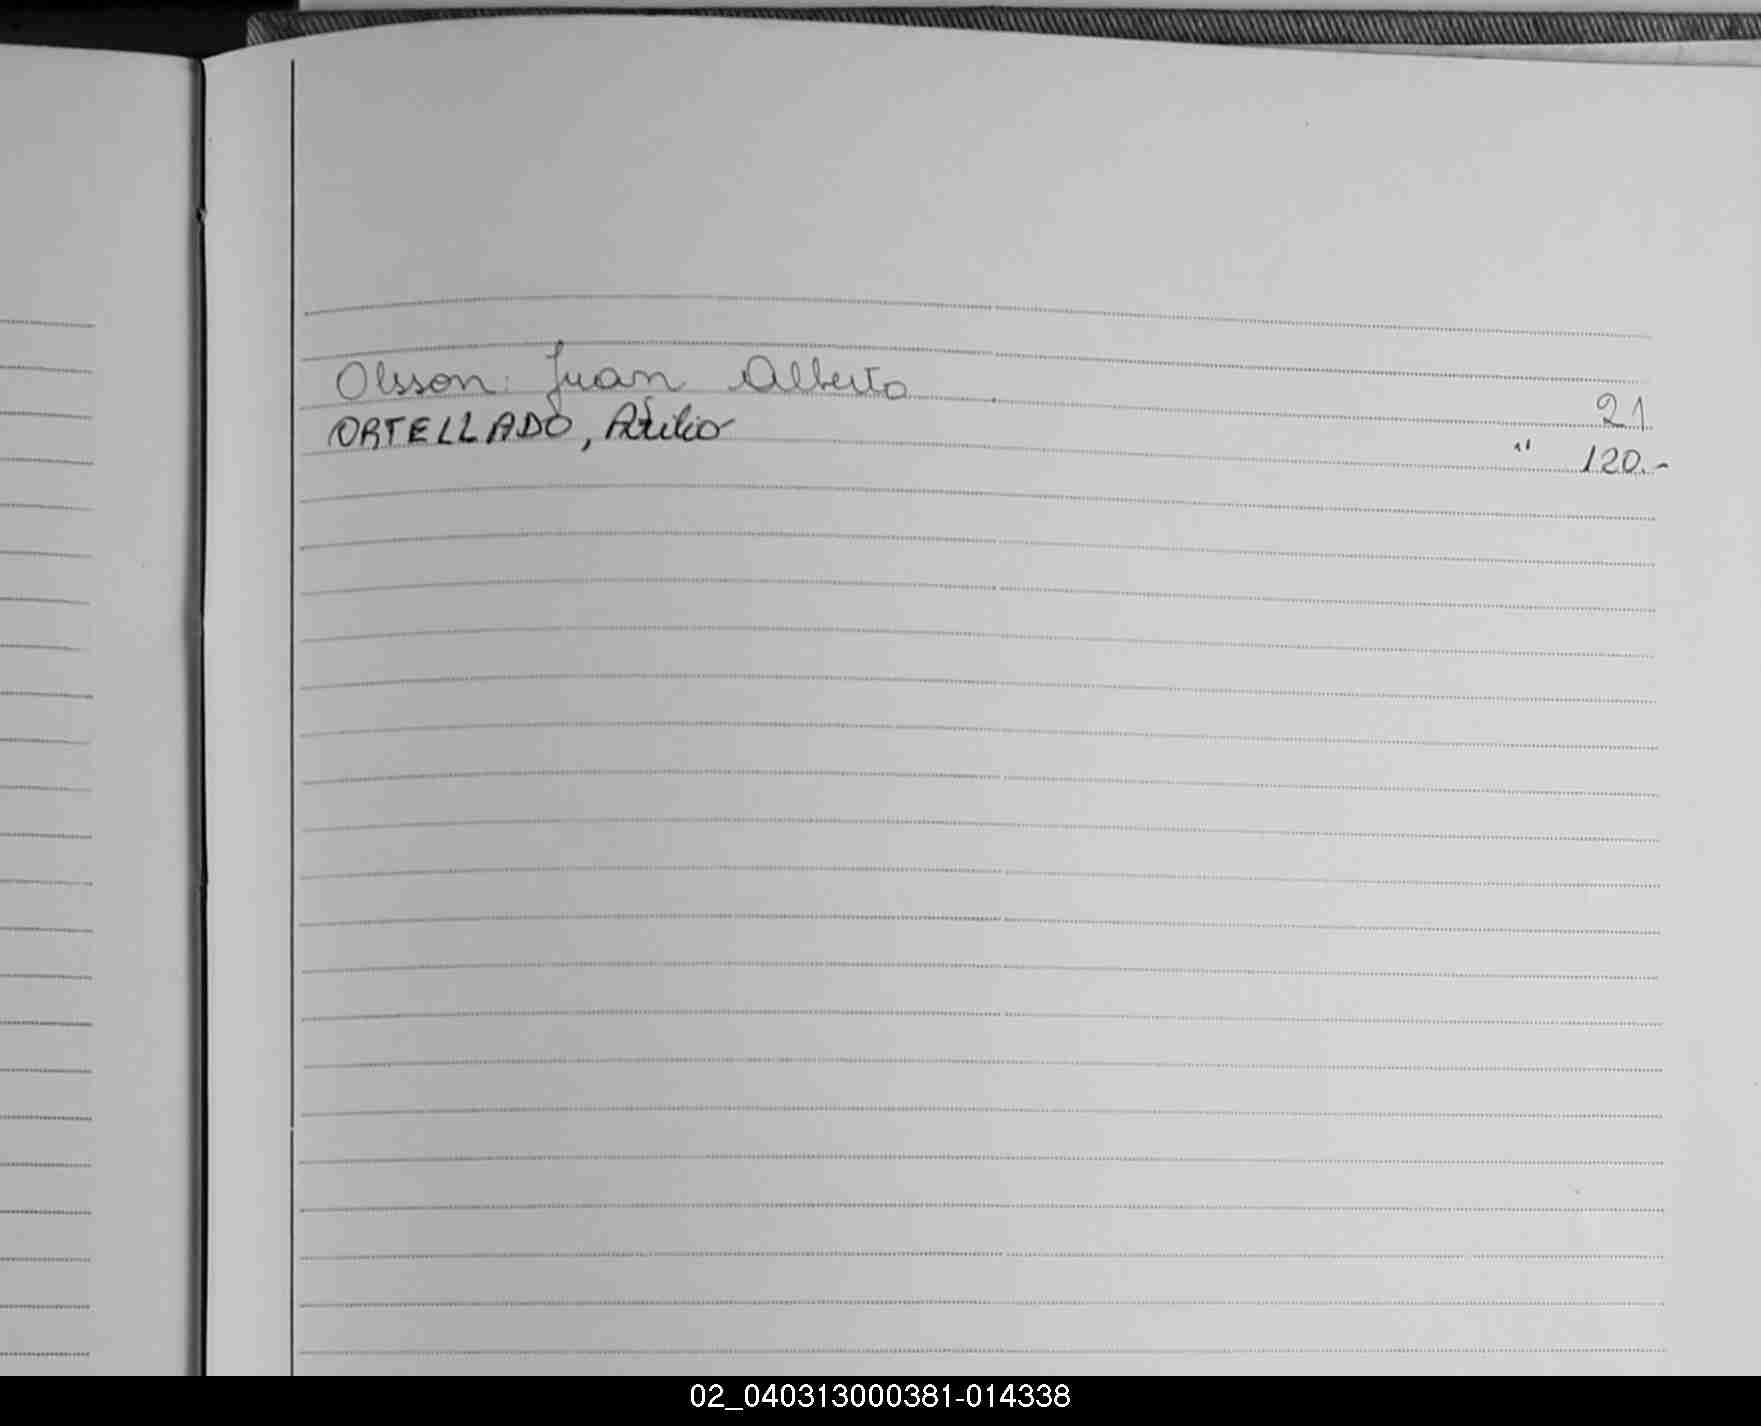 Olsson: Juan Alberto 21
ORTELLADO, " 120.-
02_040313000381-014338